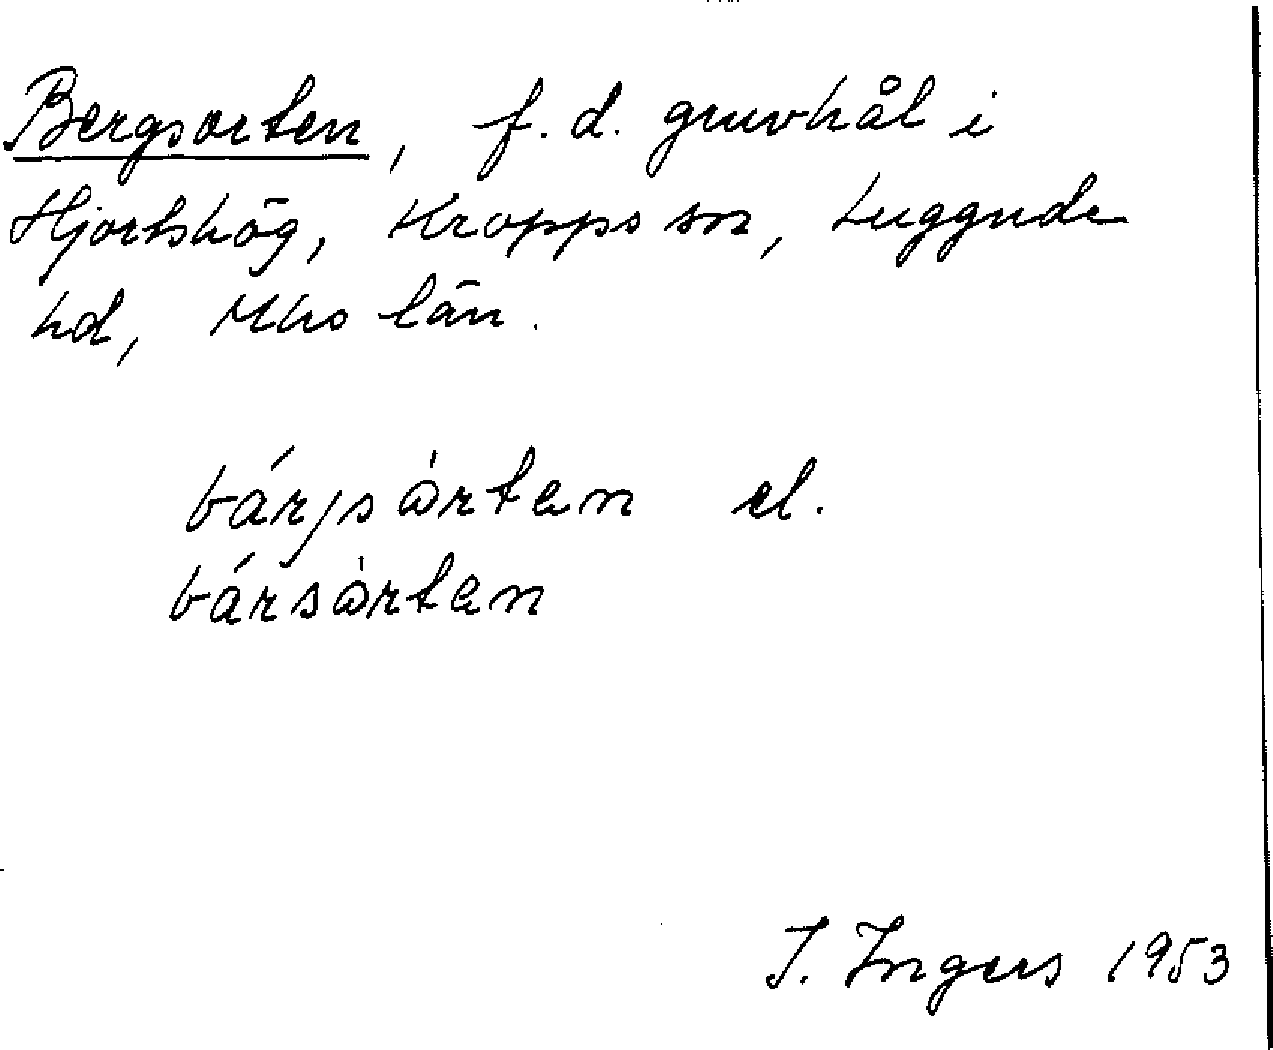 Bergsorten, f. d. gruvhål i
Hjortshög, Kropps sn, Luggude
hd, Mhs län.
bárjsòrten el.
bársòrten
I. Ingers 1953